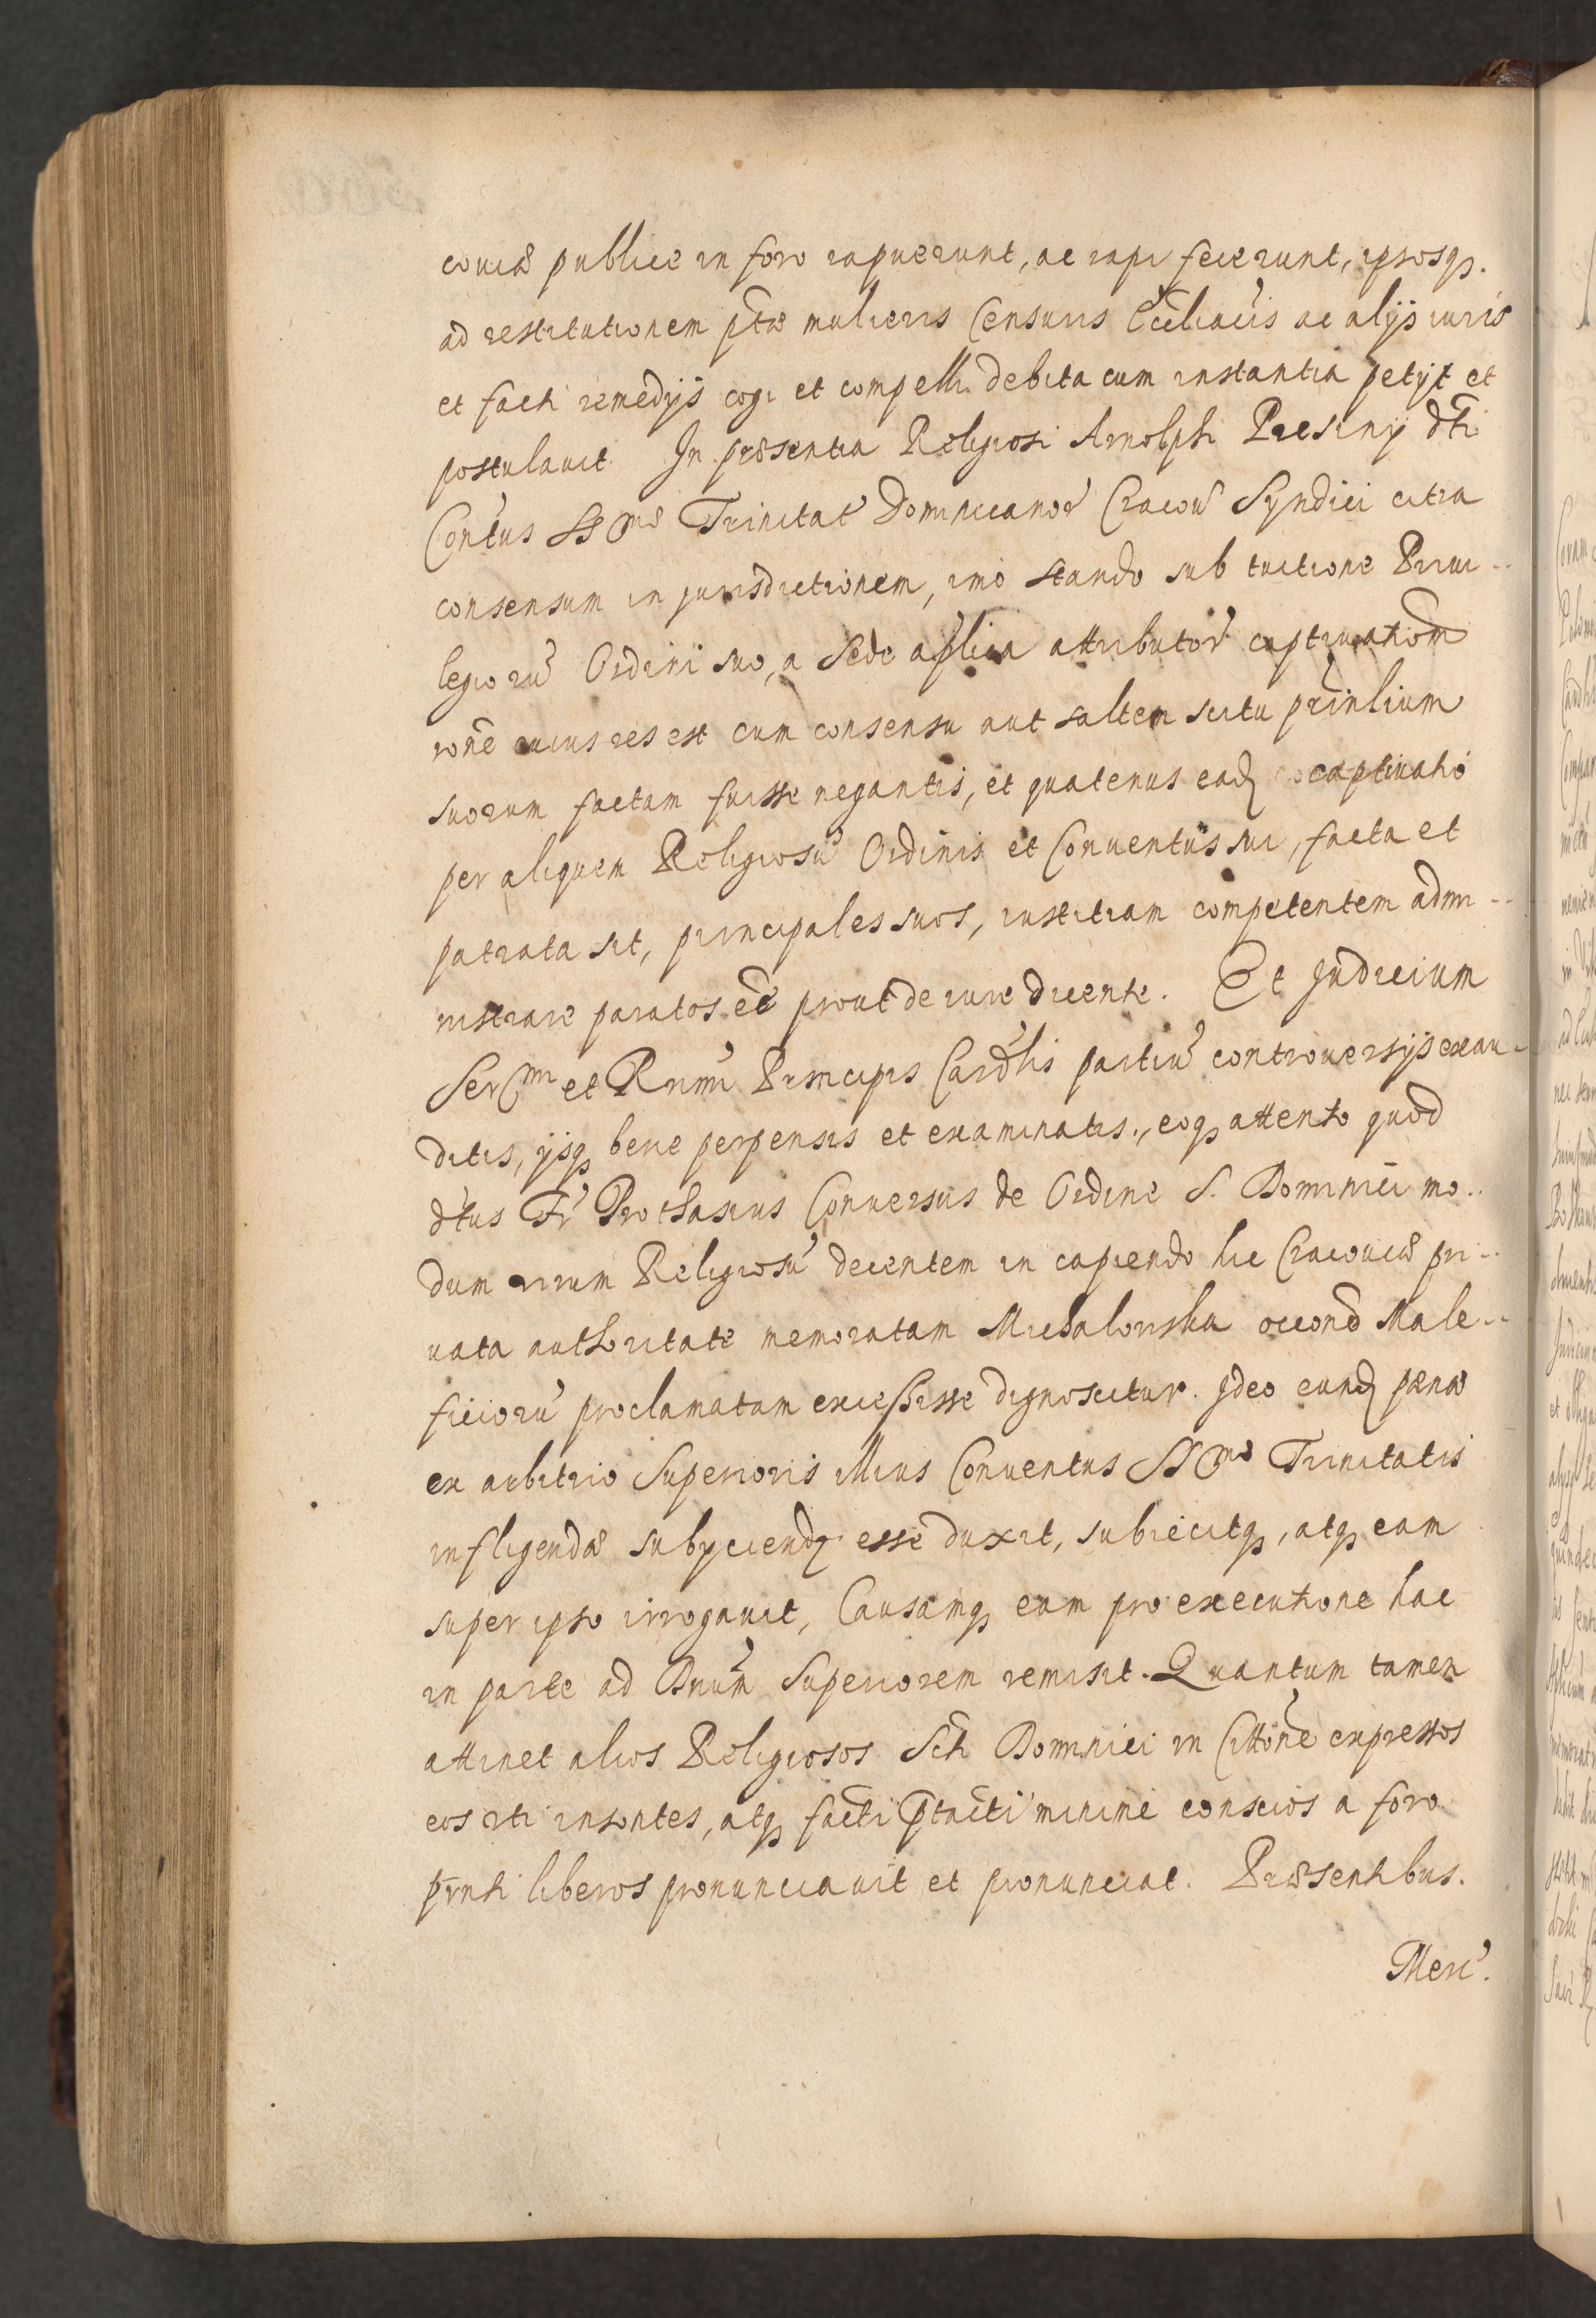 couiæ publice in foro rapuerunt, ac rapi fecerunt, ipsosq3.
ad restitutionem p̃tæ mulieris Censuris Eccliacis ac alijs iuris
et facti remedijs cogi et compelli debita cum instantia petijt et
postulauit In præsentia Religiosi Arnolphi Presinij dti
Contus SSmæ Trinitat Dominicanor Cracou Syndici citra
consensum in jurisdictionem, imo stando sub tuitione Priui--
legioru Ordini suo, a Sede aplica attributor captiuationem
rone cuius res est cum consensu aut saltem scitu prinlium
suorum factam fuisse negantis, et quatenus ead captiuatio
per aliquem Religiosu Ordinis et Conuentus sui, facta et
patrata sit, principales suos, iustitiam competentem admi--
nistrare paratos ee prout de iure dicente. Et Judicium
Sermi et Rnmi Principis Cardlis partiu controuersijs exau-
ditis, ijsq3 bene perpensis et examinatis., eoq3 attento quod
dtus Fr Prothasius Conuersus de Ordine S. Dominici mo..
dum virum Religiosu decentem in capiendo hic Cracouiæ pri--
uata authoritate memoratam Michalowska occone Male--
ficioru proclamatam excessisse dignoscitur. Ideo eund pænæ
ex arbitrio Superioris illius Conuentus SSmæ Trinitatis
infligendæ subijciend esse duxit, subiecitq3, atq3 eam
super ipso irrogauit, Causamq3 eam pro executione hac
in parte ad Dnum Superiorem remisit. Quantum tamen
attinet alios Religiosos Scti Dominici in Cittone expressos
eos uti insontes, atq3 facti ptacti minime conscios a foro
prnti liberos pronunciauit et pronunciat. Præsentibus.
Meri.